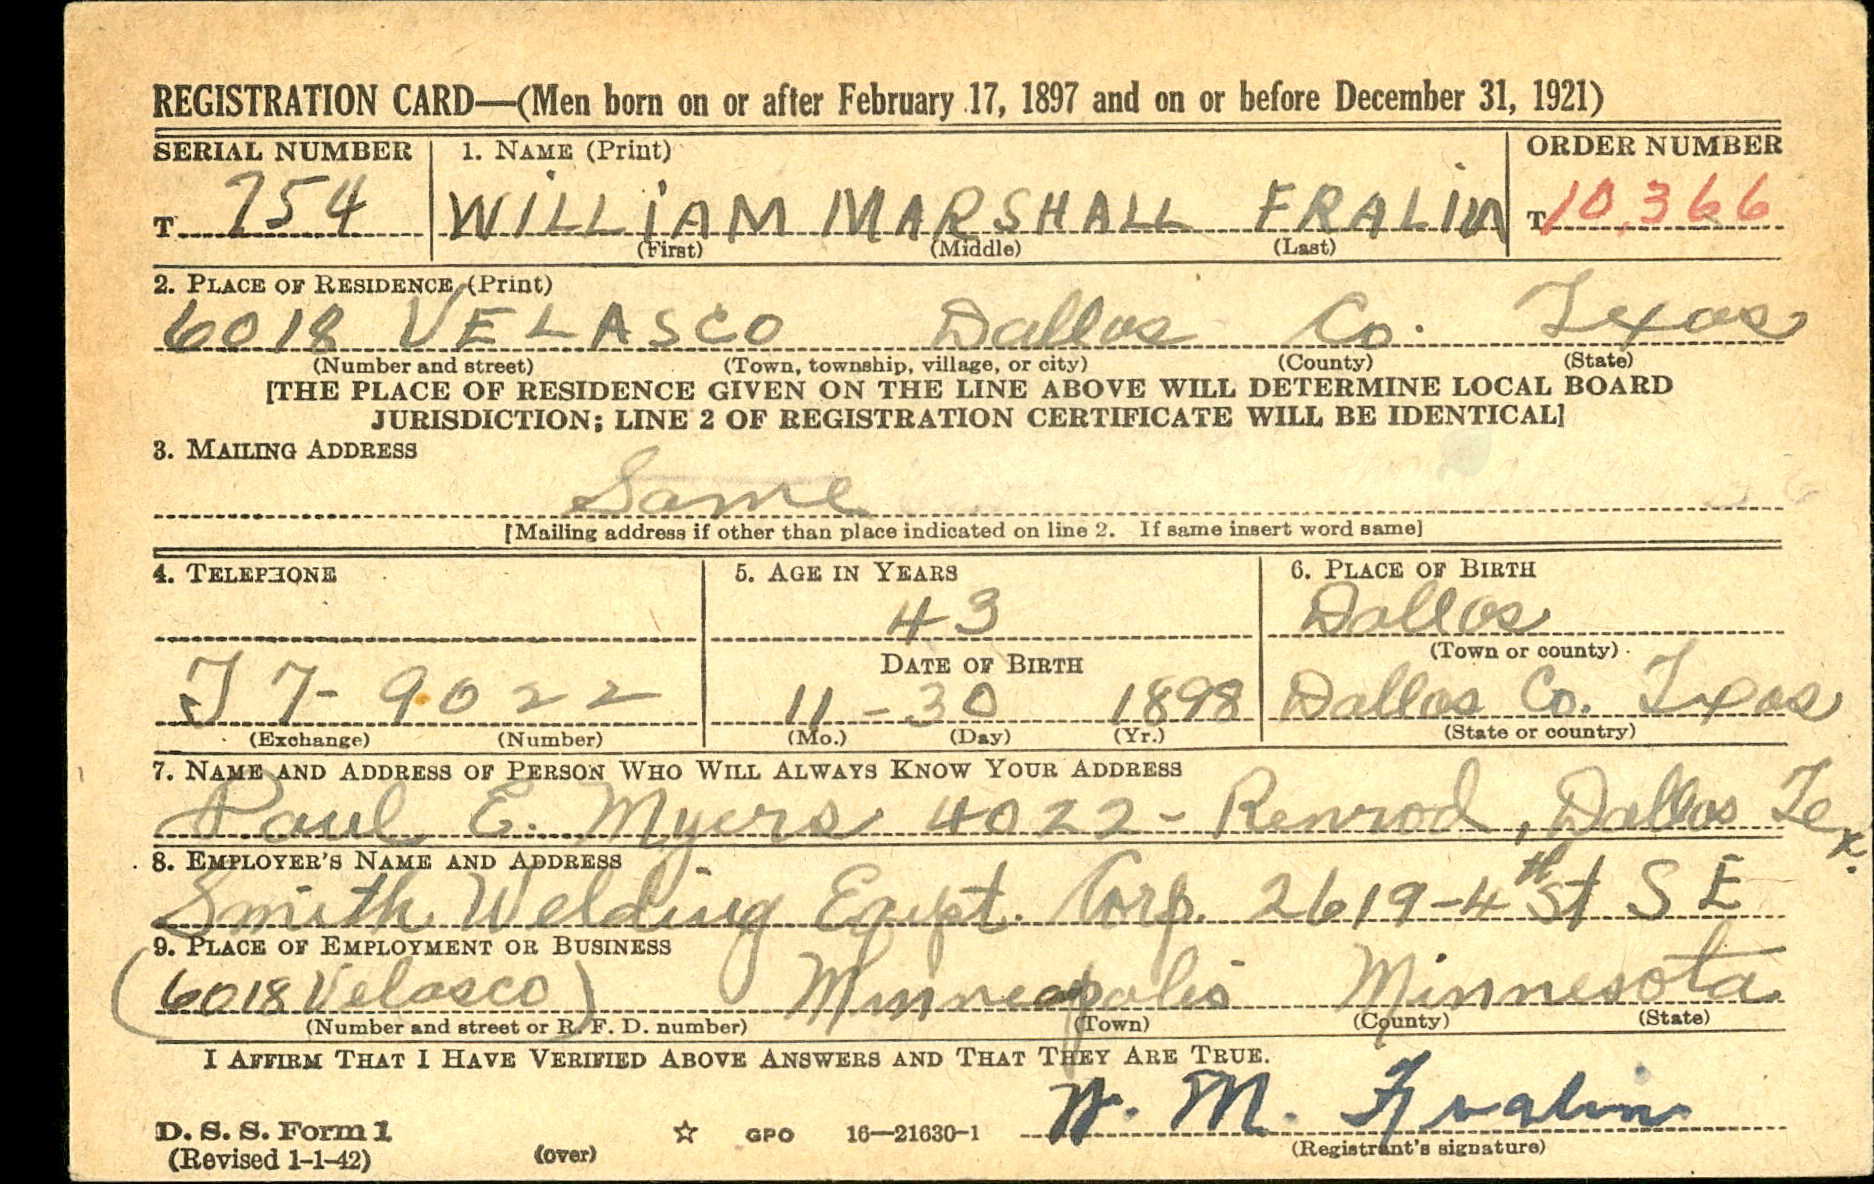 REGISTRATION CARD—(Men born on or after February 17, 1897 and on or before December 31, 1921)
SERIAL NUMBER 1. NAME (Print) ORDER NUMBER
T 754 WILLIAM MARSHALL FRALIN T 10,366
(First) (Middle) (Last)
2. PLACE OF RESIDENCE (Print)
6018 VELASCO Dallas Co. Texas
(Number and street) (Town, township, village, or city) (County) (State)
[THE PLACE OF RESIDENCE GIVEN ON THE LINE ABOVE WILL DETERMINE LOCAL BOARD
JURISDICTION; LINE 2 OF REGISTRATION CERTIFICATE WILL BE IDENTICAL]
3. MAILING ADDRESS
Same
[Mailing address if other than place indicated on line 2. If same insert word same]
4. TELEPHONE 5. AGE IN YEARS 6. PLACE OF BIRTH
43 Dallas
DATE OF BIRTH (Town or county)
T 7-9022 11-30 1898 Dallas Co. Texas
(Exchange) (Number) (Mo.) (Day) (Yr.) (State or country)
7. NAME AND ADDRESS OF PERSON WHO WILL ALWAYS KNOW YOUR ADDRESS
Paul E. Myers 4022- Renrod, Dallas Tex.
8. EMPLOYER'S NAME AND ADDRESS
Smith Welding Eqipt. Corp. 2619-4th St S E
9. PLACE OF EMPLOYMENT OR BUSINESS
(6018 Velasco) Minneapolis Minnesota
(Number and street or R. F. D. number) (Town) (County) (State)
I AFFIRM THAT I HAVE VERIFIED ABOVE ANSWERS AND THAT THEY ARE TRUE.
W. M. Fralin
D. S. S. Form 1
(Revised 1-1-42) (over) ☆ GPO 16—21630-1 (Registrant's signature)